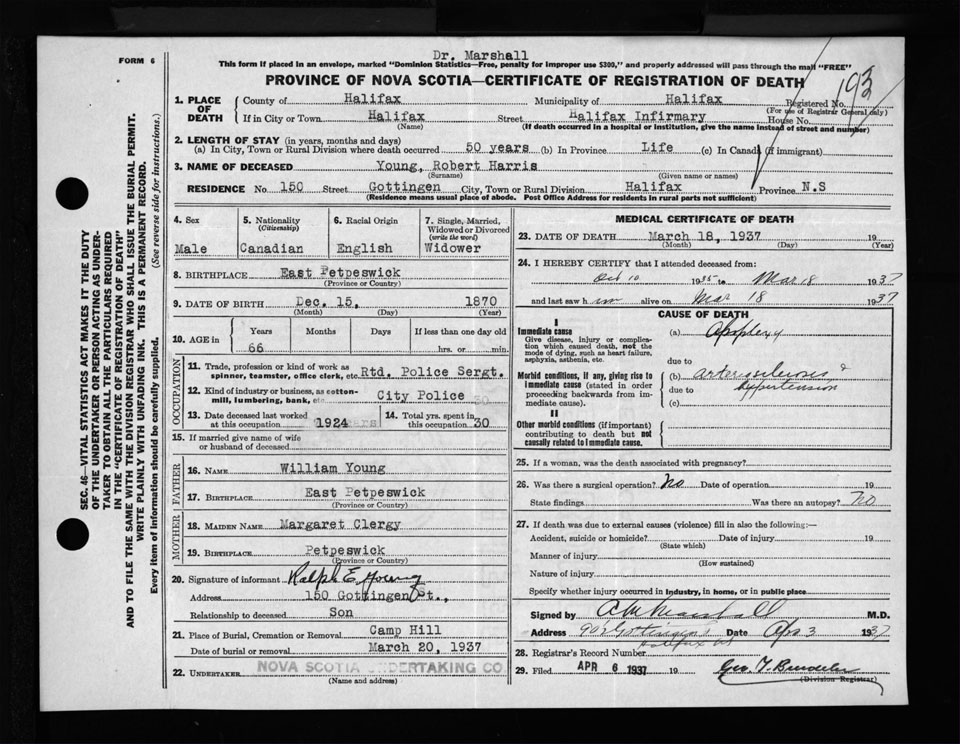 FORM 6
Dr. Marshall
This form if placed in an envelope, marked "Dominion Statistics—Free, penalty for improper use $300," and properly addressed will pass through the mail "FREE"
PROVINCE OF NOVA SCOTIA—CERTIFICATE OF REGISTRATION OF DEATH
193
1. PLACE OF DEATH
County of Halifax Municipality of Halifax Registered No.
(For use of Registrar General only)
If in City or Town Halifax Street Halifax Infirmary House No.
(Name) (If death occurred in a hospital or institution, give the name instead of street and number)
2. LENGTH OF STAY (in years, months and days)
(a) In City, Town or Rural Division where death occurred 50 years (b) In Province Life (c) In Canada (if immigrant)
3. NAME OF DECEASED Young, Robert Harris
(Surname) (Given name or names)
RESIDENCE No. 150 Street Gottingen City, Town or Rural Division Halifax Province N.S
(Residence means usual place of abode. Post Office Address for residents in rural parts not sufficient)
SEC. 46—VITAL STATISTICS ACT MAKES IT THE DUTY
OF THE UNDERTAKER OR PERSON ACTING AS UNDER-
TAKER TO OBTAIN ALL THE PARTICULARS REQUIRED
IN THE "CERTIFICATE OF REGISTRATION OF DEATH"
AND TO FILE THE SAME WITH THE DIVISION REGISTRAR WHO SHALL ISSUE THE BURIAL PERMIT.
WRITE PLAINLY WITH UNFADING INK. THIS IS A PERMANENT RECORD.
Every item of information should be carefully supplied. (See reverse side for instructions.)
4. Sex
Male
5. Nationality
(Citizenship)
Canadian
6. Racial Origin
English
7. Single, Married,
Widowed or Divorced
(write the word)
Widower
8. BIRTHPLACE East Petpeswick
(Province or Country)
9. DATE OF BIRTH Dec. 15, 1870
(Month) (Day) (Year)
10. AGE in
Years Months Days If less than one day old
66 hrs. or min.
OCCUPATION
11. Trade, profession or kind of work as
spinner, teamster, office clerk, etc. Rtd. Police Sergt.
12. Kind of industry or business, as cotton-
mill, lumbering, bank, etc. City Police
13. Date deceased last worked
at this occupation 1924
14. Total yrs. spent in
this occupation 30
15. If married give name of wife
or husband of deceased
FATHER
16. NAME William Young
17. BIRTHPLACE East Petpeswick
(Province or Country)
MOTHER
18. MAIDEN NAME Margaret Clergy
19. BIRTHPLACE Petpeswick
(Province or Country)
20. Signature of informant Ralph E. Young
Address 150 Gottingen St.,
Relationship to deceased Son
21. Place of Burial, Cremation or Removal Camp Hill
Date of burial or removal March 20, 1937
22. UNDERTAKER NOVA SCOTIA UNDERTAKING CO
(Name and address)
MEDICAL CERTIFICATE OF DEATH
23. DATE OF DEATH March 18, 1937 19
(Month) (Day) (Year)
24. I HEREBY CERTIFY that I attended deceased from:
Oct 10 1935 to Mar 18 1937
and last saw him alive on Mar 18 1937
CAUSE OF DEATH
I
Immediate cause
Give disease, injury or complica-
tion which caused death, not the
mode of dying, such as heart failure,
asphyxia, asthenia, etc.
(a) Apoplexy
due to
Morbid conditions, if any, giving rise to
immediate cause (stated in order
proceeding backwards from im-
mediate cause).
(b) arteriosclerosis &
due to hypertension
(c)
II
Other morbid conditions (if important)
contributing to death but not
causally related to immediate cause.
25. If a woman, was the death associated with pregnancy?
26. Was there a surgical operation? No Date of operation 19
State findings Was there an autopsy? No
27. If death was due to external causes (violence) fill in also the following:—
Accident, suicide or homicide? Date of injury 19
(State which)
Manner of injury
(How sustained)
Nature of injury
Specify whether injury occurred in Industry, in home, or in public place
Signed by Marshall M.D.
Address Gottingen Date Apr 3 1937
Halifax NS
28. Registrar's Record Number
29. Filed APR 6 1937 19
(Division Registrar)